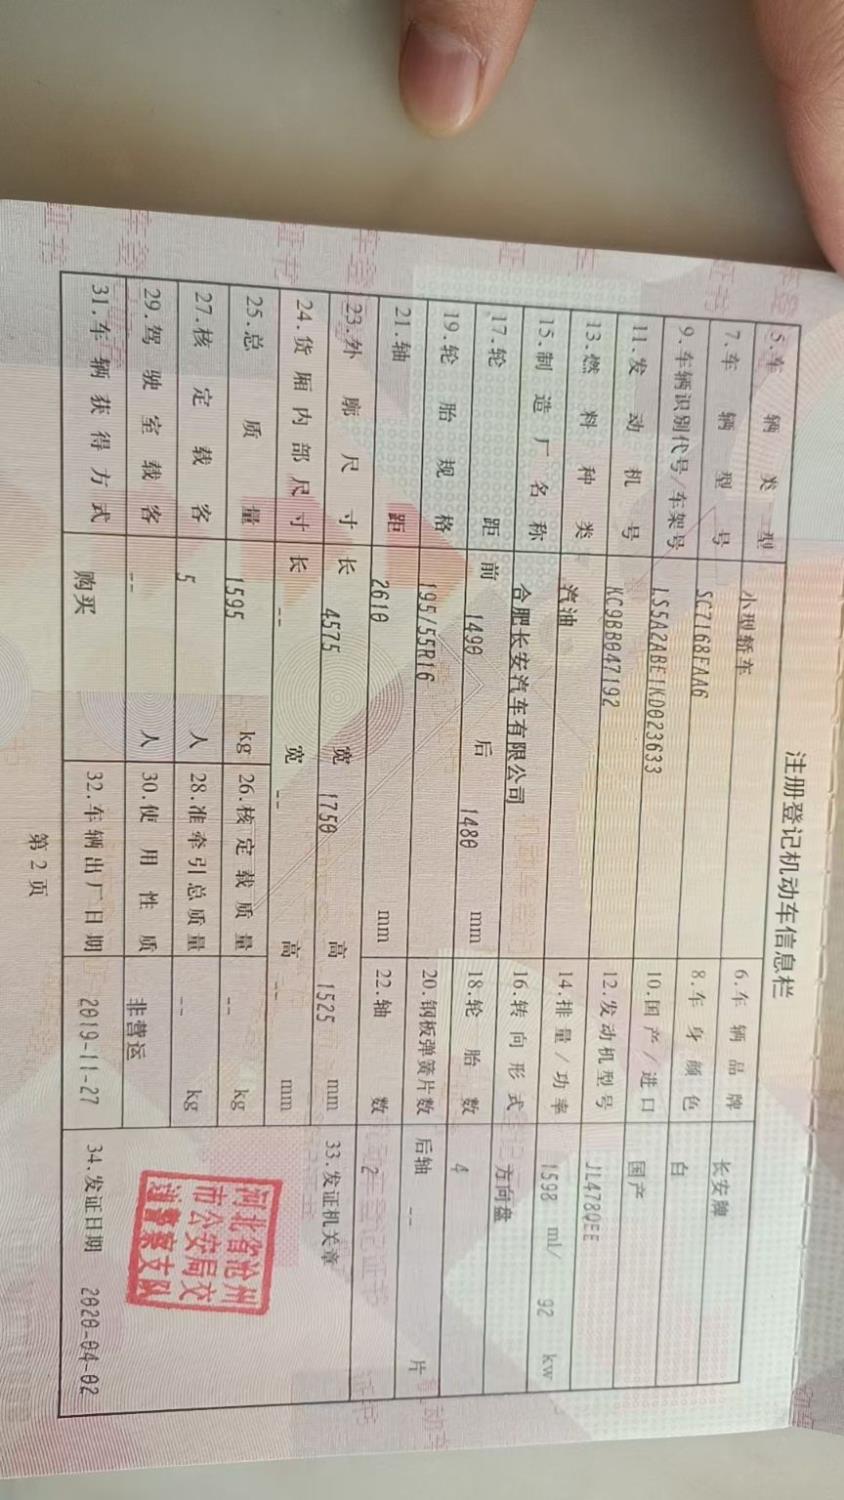 注册登记机动车信息栏
5.车辆类型 小型轿车 6.车辆品牌 长安牌
7.车辆型号 SC7168FAA6 8.车身颜色 白
9.车辆识别代号/车架号 LS5A2ABE1KD023633 10.国产/进口 国产
11.发动机号 KC9BB047192 12.发动机型号 JL478QEE
13.燃料种类 汽油 14.排量/功率 1598 ml/ 92 kw
15.制造厂名称 合肥长安汽车有限公司 16.转向形式 方向盘
17.轮距 前 1490 后 1480 mm 18.轮胎数 4
19.轮胎规格 195/55R16 20.钢板弹簧片数 后轴 -- 片
21.轴距 2610 mm 22.轴数 2
23.外廓尺寸 长 4575 宽 1750 高 1525 mm 33.发证机关章
24.货厢内部尺寸 长 -- 宽 -- 高 -- mm
25.总质量 1595 kg 26.核定载质量 -- kg
27.核定载客 5 人 28.准牵引总质量 -- kg
29.驾驶室载客 -- 人 30.使用性质 非营运
31.车辆获得方式 购买 32.车辆出厂日期 2019-11-27 34.发证日期 2020-04-02
河北省沧州
市公安局交
通警察支队
第2页